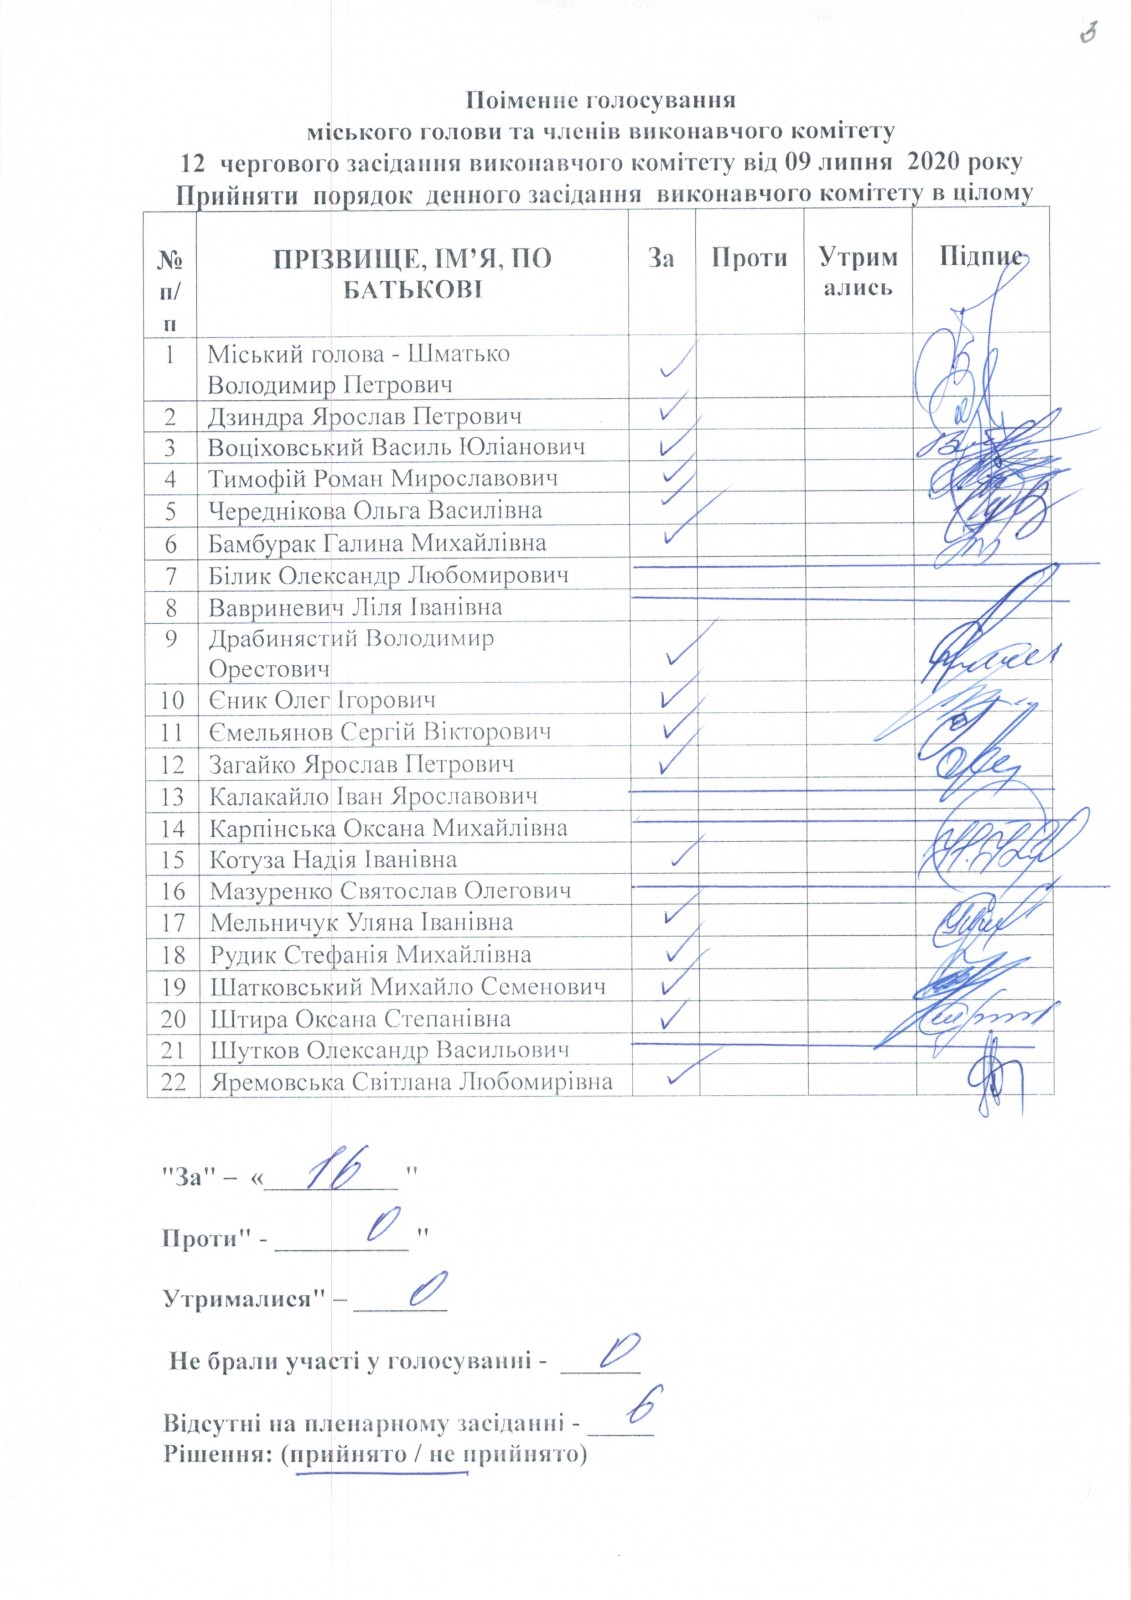 3
Поіменне голосування
міського голови та членів виконавчого комітету
12 чергового засідання виконавчого комітету від 09 липня 2020 року
Прийняти порядок денного засідання виконавчого комітету в цілому
№ п/п ПРІЗВИЩЕ, ІМ’Я, ПО БАТЬКОВІ За Проти Утримались Підпис
1 Міський голова - Шматько
Володимир Петрович ✓
2 Дзиндра Ярослав Петрович ✓
3 Воціховський Василь Юліанович ✓
4 Тимофій Роман Мирославович ✓
5 Череднікова Ольга Василівна ✓
6 Бамбурак Галина Михайлівна ✓
7 Білик Олександр Любомирович
8 Вавриневич Ліля Іванівна
9 Драбинястий Володимир
Орестович ✓
10 Єник Олег Ігорович ✓
11 Ємельянов Сергій Вікторович ✓
12 Загайко Ярослав Петрович ✓
13 Калакайло Іван Ярославович
14 Карпінська Оксана Михайлівна
15 Котуза Надія Іванівна ✓
16 Мазуренко Святослав Олегович
17 Мельничук Уляна Іванівна ✓
18 Рудик Стефанія Михайлівна ✓
19 Шатковський Михайло Семенович ✓
20 Штира Оксана Степанівна ✓
21 Шутков Олександр Васильович
22 Яремовська Світлана Любомирівна ✓
"За" – « 16 "
Проти" - 0 "
Утрималися" – 0
Не брали участі у голосуванні - 0
Відсутні на пленарному засіданні - 6
Рішення: (прийнято / не прийнято)